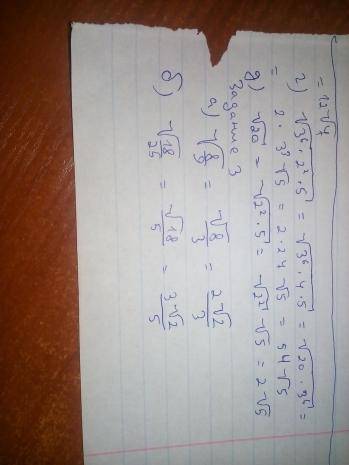 = 12√4
г) √(3⁶ · 2² · 5) = √(3⁶ · 4 · 5) = √(20 · 3⁶) =
= 2 · 3³ √5 = 2 · 27 √5 = 54 √5
д) √20 = √(2² · 5) = √2² √5 = 2√5
Задание 3
а) √(8/9) = √8/3 = 2√2/3
б) √(18/25) = √18/5 = 3√2/5